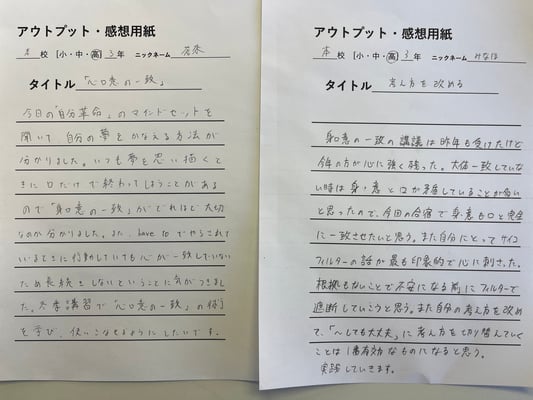 アウトプット・感想用紙
本 校 [小・中・高] 3 年 ニックネーム
タイトル 「心口意の一致」
今日の「自分革命」のマインドセットを
聞いて、自分の夢をかなえる方法が
分かりました。いつも夢を思い描くと
きに口だけで終わってしまうことがある
ので「身口意の一致」がどれほど大切
なのか分かりました。また、have toでやらされて
いるときに行動していても心が一致していない
ため長続きしないということに気がつきまし
た。冬季講習で「心口意の一致」の術
を学び、使いこなせるようにしたいです。
アウトプット・感想用紙
本 校 [小・中・高] 3 年 ニックネーム みなほ
タイトル 考え方を改める
身口意の一致の講議は昨年も受けたけど
今年の方が心に強く残った。大体一致していな
い時は身・意と口が矛盾していることが多い
と思ったので、今回の合宿で身・意も口も完全
に一致させたいと思う。また自分にとってサイコ
フィルターの話が最も印象的で心に刺さった。
根拠もないことで不安になる前にフィルターで
遮断していこうと思う。また自分の考え方を改め
て、「〜しても大丈夫」に考え方を切り替えていく
ことは1番有効なものになると思う。
実践していきます。